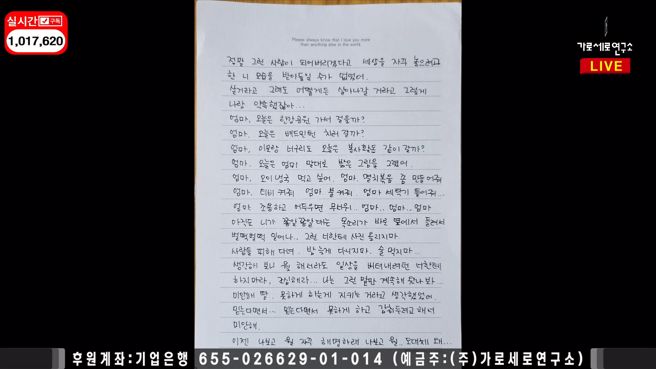 실시간 구독
1,017,620
가로세로연구소
LIVE
Please always know that I love you more
than anything else in the world.
정말 그런 사람이 되어버리겠다고 세상을 자꾸 놓으려고
한 니 모습을 받아들일 수가 없었어.
살거라고 그래도 어떻게든 살아나갈 거라고 그렇게
나랑 약속했잖아...
엄마, 오늘은 한강공원 가서 걸을까?
엄마. 오늘은 배드민턴 치러 갈까?
엄마, 이모랑 너구리도 오늘은 봉사활동 같이 갈까?
엄마. 오늘은 엄마 말대로 밝은 그림을 그렸어.
엄마, 오이냉국 먹고 싶어. 엄마. 멸치볶음 좀 만들어줘
엄마, 티비 켜줘 엄마 불 켜줘. 엄마 세탁기 돌려줘...
엄마 조용하고 어두우면 무서워.. 엄마.. 엄마... 엄마
아직도 니가 쫑알쫑알대는 목소리가 바로 옆에서 들려서
벌떡벌떡 일어나.. 그런 너한테 사진 올리지마
사람들 피해 다녀. 밤 늦게 다시지마. 술 먹지마..
생각해 보니 뭘 해서라도 일상을 버텨내려던 너한테
하지마라, 조심해라... 나는 그런 말만 계속해 왔나 봐...
미안해 딸. 못하게 하는게 지키는 거라고 생각했었어.
믿는다면서.. 믿는다면서 못하게 하고 감춰두려고 해서
미안해.
이젠 나보고 뭘 자꾸 해명하래 나보고 뭘. 도대체 왜...
후원계좌:기업은행 655-026629-01-014 (예금주:(주)가로세로연구소)